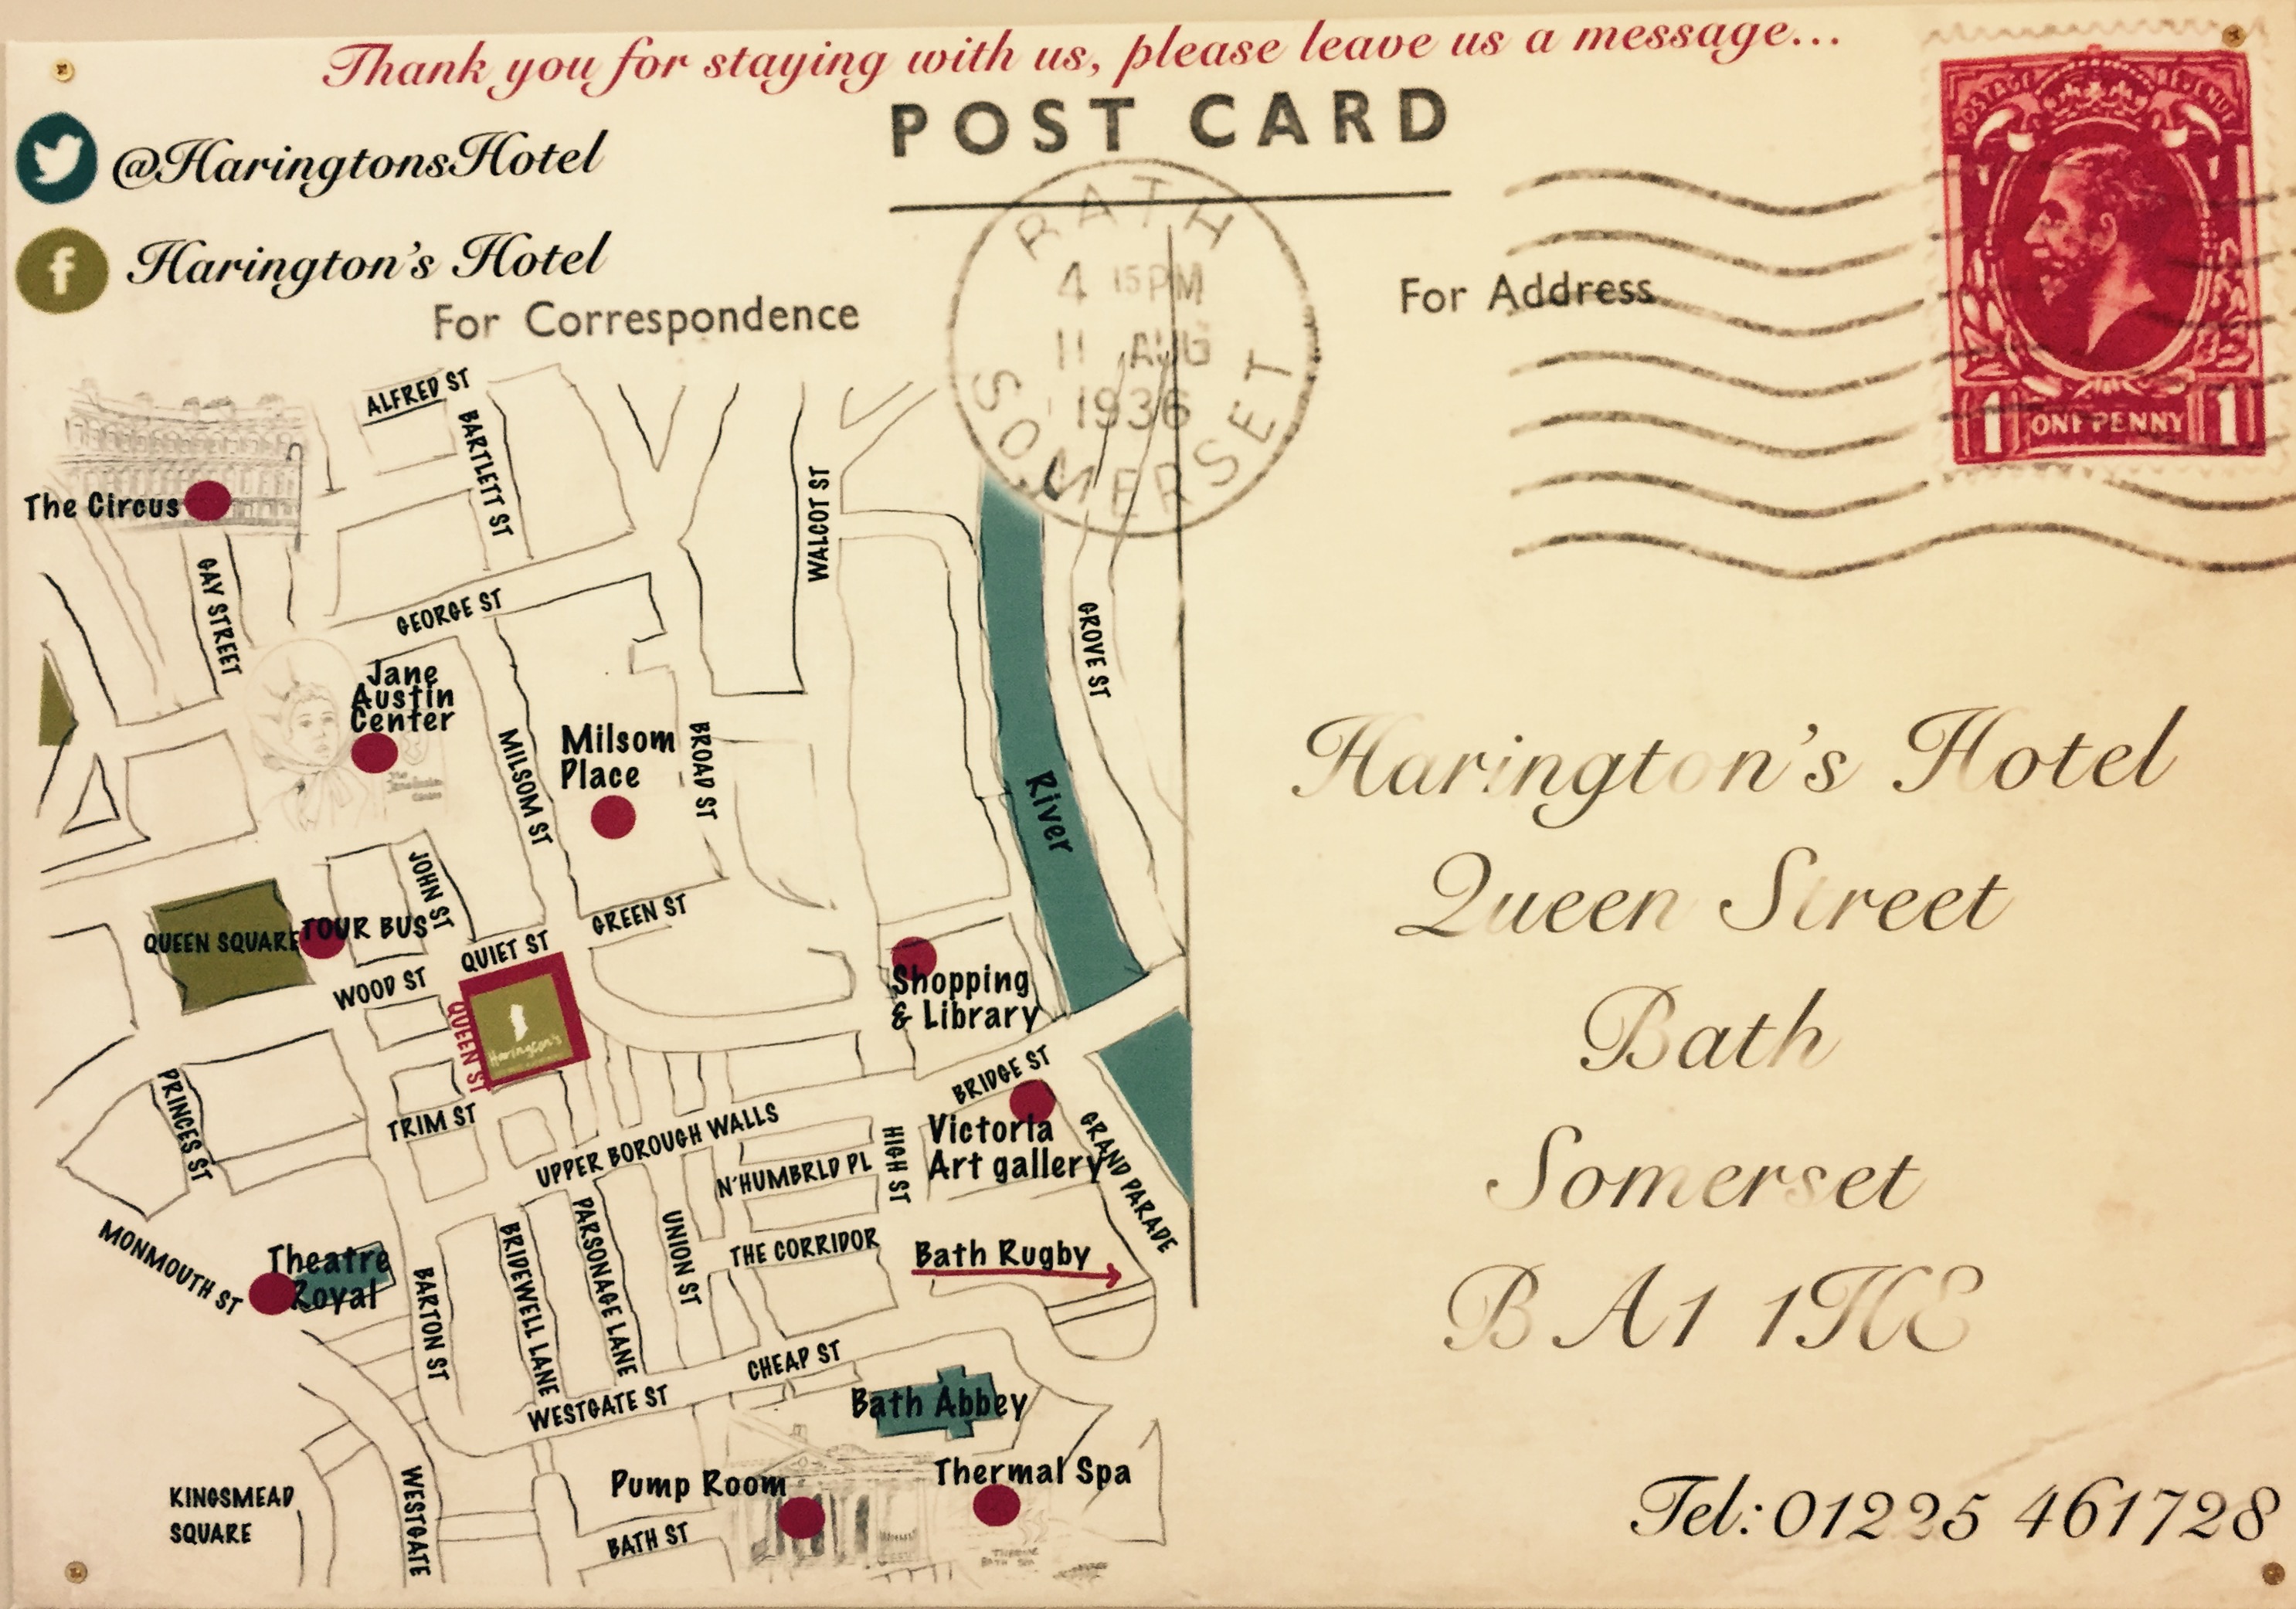 Thank you for staying with us, please leave us a message...
@HaringtonsHotel
Harington's Hotel
POST CARD
For Correspondence
For Address
BATH
4 15PM
11 AUG
1936
SOMERSET
POSTAGE REVENUE
1 ONE PENNY 1
ALFRED ST
BARTLETT ST
The Circus
GAY STREET
GEORGE ST
WALCOT ST
GROVE ST
Jane
Austin
Center
MILSOM ST
Milsom
Place
BROAD ST
River
JOHN ST
QUEEN SQUARE
TOUR BUS
GREEN ST
QUIET ST
WOOD ST
QUEEN ST
Harington's
Shopping
& Library
BRIDGE ST
PRINCES ST
TRIM ST
UPPER BOROUGH WALLS
N'HUMBRLD PL
HIGH ST
Victoria
Art gallery
GRAND PARADE
MONMOUTH ST
Theatre
Royal
BARTON ST
BRIDEWELL LANE
PARSONAGE LANE
UNION ST
THE CORRIDOR
Bath Rugby
CHEAP ST
WESTGATE ST
Bath Abbey
KINGSMEAD
SQUARE
WESTGATE
Pump Room
Thermal Spa
BATH ST
Harington's Hotel
Queen Street
Bath
Somerset
BA1 1HE
Tel: 01225 461728